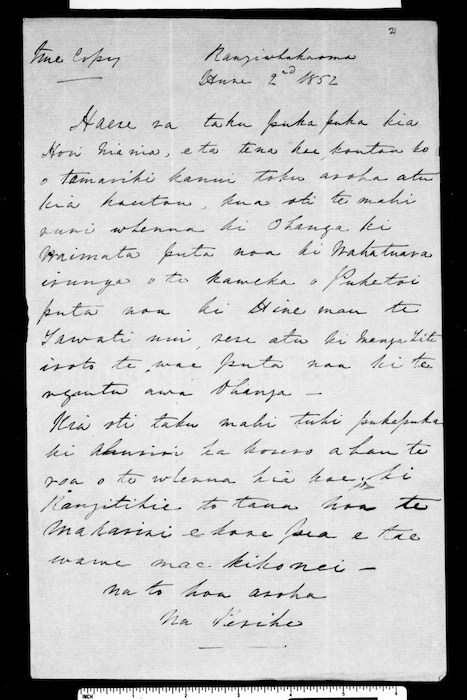 2
True Copy
Rangiwhakaoma
Hune 2nd 1852
Haere ra taku puka puka kia
Hori Niania, e ta tena koe, koutou ko
o tamariki kanui toku aroha atu
kia koutou, kua oti te mahi
ruri whenua ki Ohanga ki
Waimata puta noa ki Wahatuara
irunga o te kaweka o Puketoi
puta noa ki Hine mau te
Tawati nui, rere atu ki Manga Titi
iroto te, wae puta noa ki te
ngutu awa Ohanga —
Kia oti taku mahi tuhi pukapuka
ki Ahuriri ka korero ahau te
roa o te whenua kia koe, ki
Rangitikie to taua hoa te
Makarini e kore pea e tae
wawe mae. kikonei —
na to hoa aroha
Na
INCH